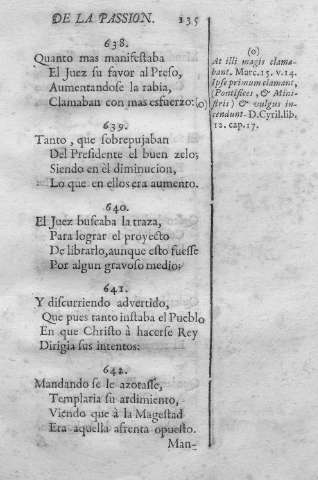 DE LA PASSION. 135
638.
Quanto mas manifestaba
El Juez su favor al Preso,
Aumentandose la rabia,
Clamaban con mas esfuerzo:(o)
639.
Tanto, que sobrepujaban
Del Presidente el buen zelo;
Siendo en èl diminucion,
Lo que en ellos era aumento.
640.
El Juez buscaba la traza,
Para lograr el proyecto
De librarlo, aunque esto fuesse
Por algun gravoso medio:
641.
Y discurriendo advertido,
Que pues tanto instaba el Pueblo
En que Christo à hacerse Rey
Dirigia sus intentos:
642.
Mandando se le azotasse,
Templaria su ardimiento,
Viendo que à la Magestad
Era aquella afrenta opuesto.
Man-
(o)
At illi magis clama-
bant. Marc. 15. v. 14.
Ipse primum clamant,
(Pontifices, & Mini-
stri) & vulgus in-
cendunt. D. Cyril. lib.
12. cap. 17.